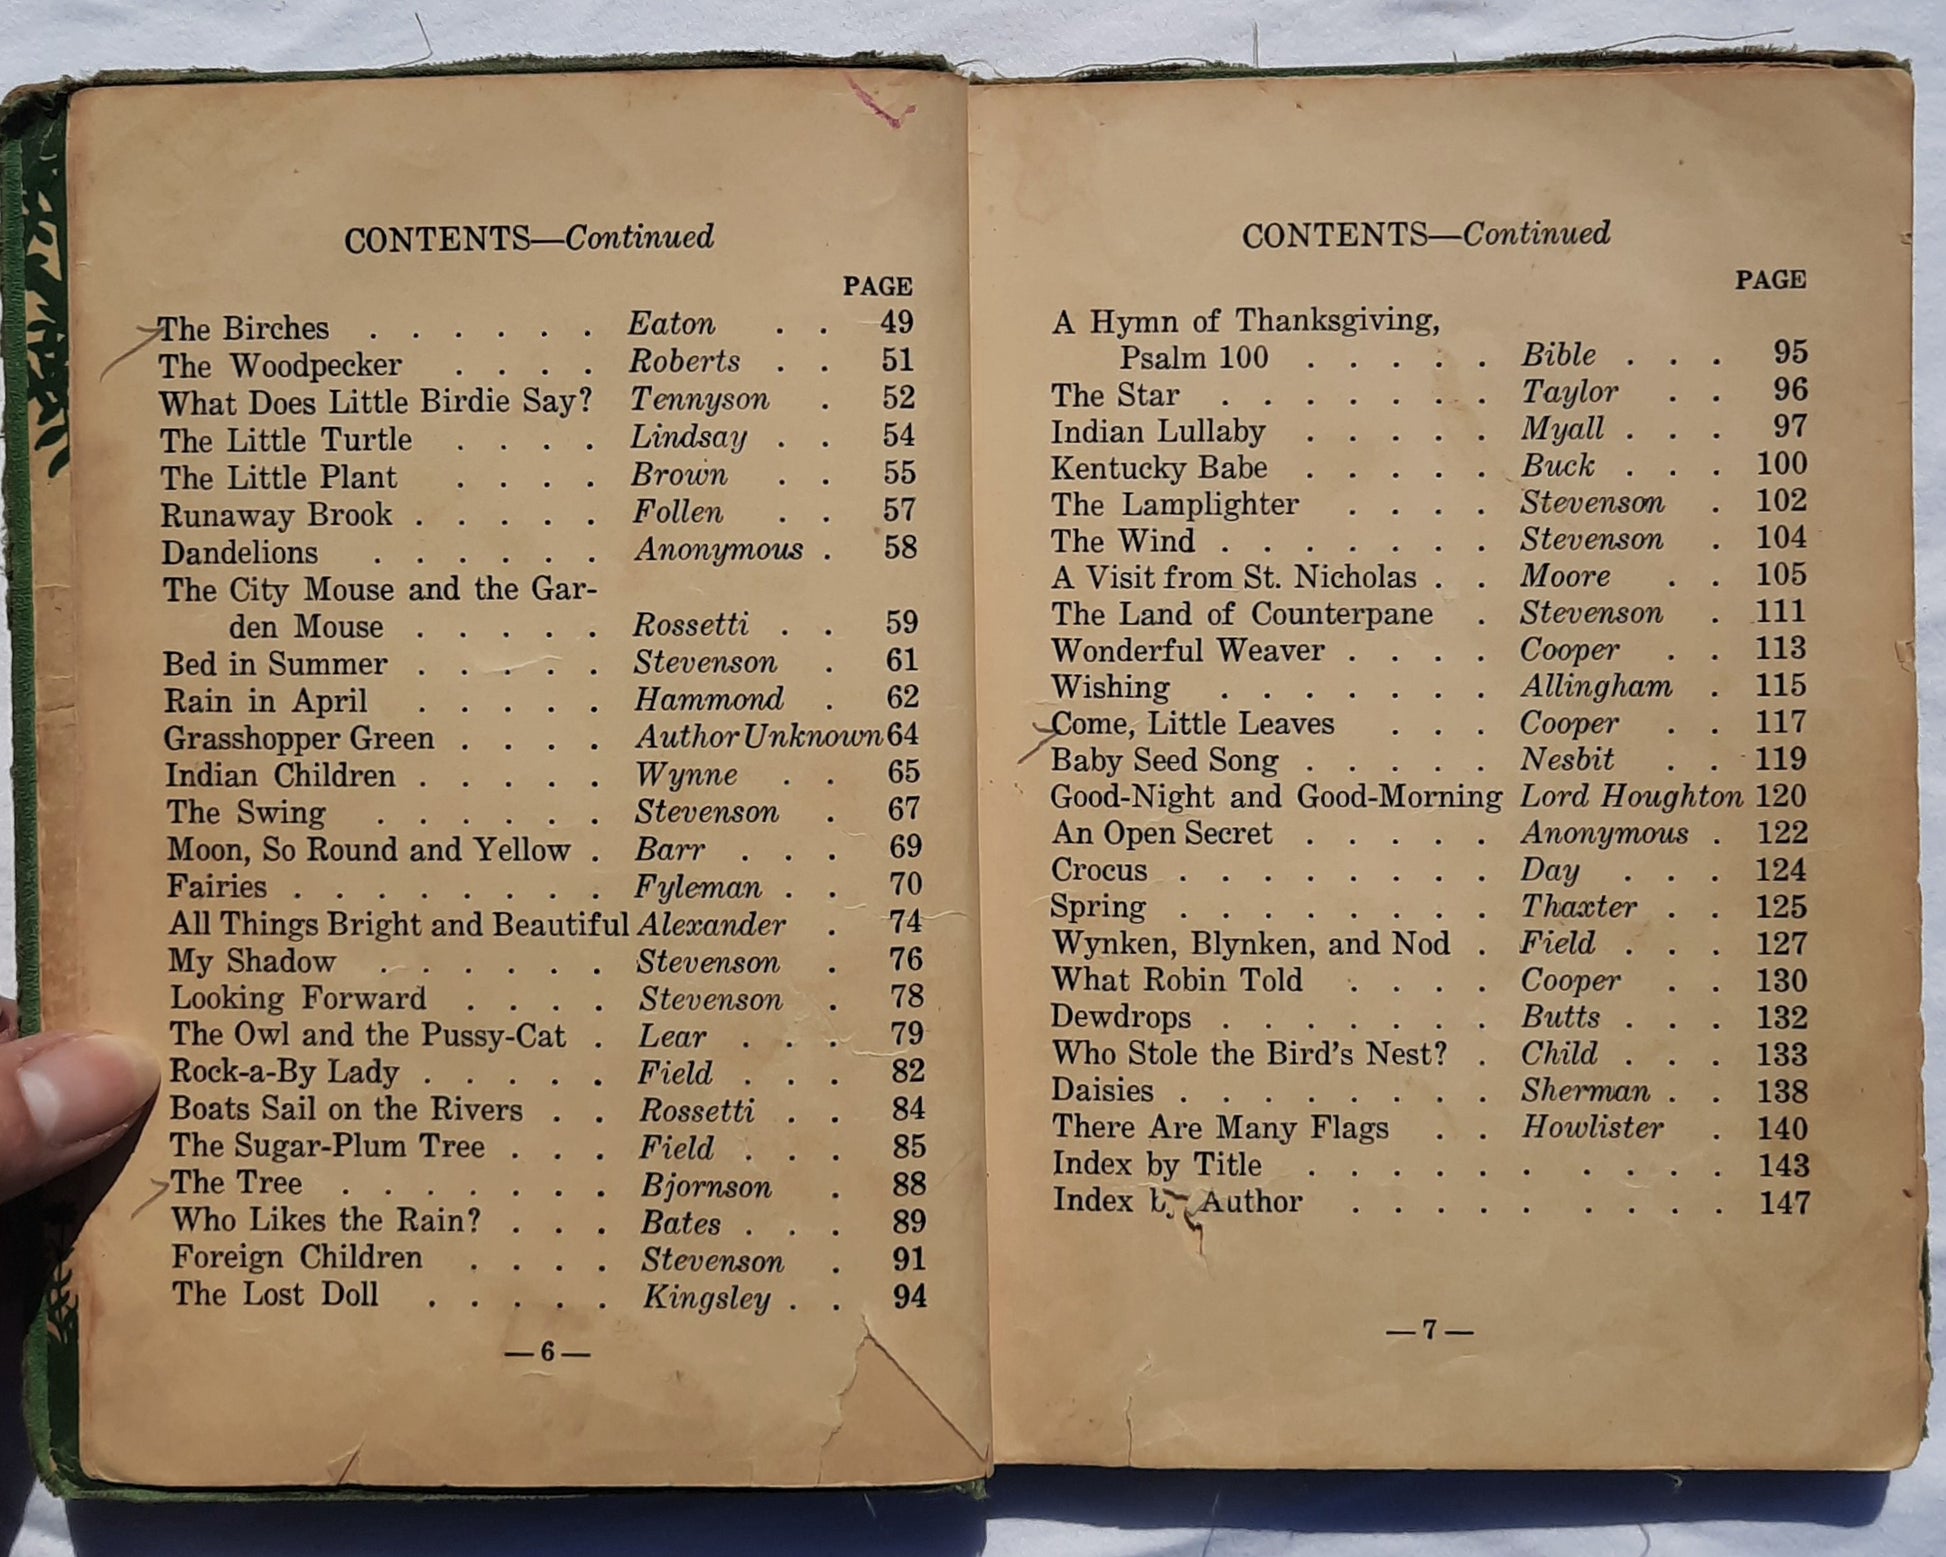 CONTENTS—Continued
PAGE
The Birches . . . . . . Eaton . . 49
The Woodpecker . . . . Roberts . . 51
What Does Little Birdie Say? Tennyson . 52
The Little Turtle . . . . Lindsay . . 54
The Little Plant . . . . Brown . . 55
Runaway Brook . . . . . Follen . . 57
Dandelions . . . . . . Anonymous . 58
The City Mouse and the Gar-
den Mouse . . . . . Rossetti . . 59
Bed in Summer . . . . . Stevenson . 61
Rain in April . . . . . Hammond . 62
Grasshopper Green . . . . Author Unknown 64
Indian Children . . . . . Wynne . . 65
The Swing . . . . . . Stevenson . 67
Moon, So Round and Yellow . Barr . . . 69
Fairies . . . . . . . . Fyleman . . 70
All Things Bright and Beautiful Alexander . 74
My Shadow . . . . . . Stevenson . 76
Looking Forward . . . . Stevenson . 78
The Owl and the Pussy-Cat . Lear . . . 79
Rock-a-By Lady . . . . . Field . . . 82
Boats Sail on the Rivers . . Rossetti . . 84
The Sugar-Plum Tree . . . Field . . . 85
The Tree . . . . . . . Bjornson . 88
Who Likes the Rain? . . . Bates . . . 89
Foreign Children . . . . Stevenson . 91
The Lost Doll . . . . . Kingsley . . 94
—6—
CONTENTS—Continued
PAGE
A Hymn of Thanksgiving,
Psalm 100 . . . . . Bible . . . 95
The Star . . . . . . . Taylor . . 96
Indian Lullaby . . . . . Myall . . . 97
Kentucky Babe . . . . . Buck . . . 100
The Lamplighter . . . . Stevenson . 102
The Wind . . . . . . . Stevenson . 104
A Visit from St. Nicholas . . Moore . . 105
The Land of Counterpane . Stevenson . 111
Wonderful Weaver . . . . Cooper . . 113
Wishing . . . . . . . Allingham . 115
Come, Little Leaves . . . Cooper . . 117
Baby Seed Song . . . . . Nesbit . . 119
Good-Night and Good-Morning Lord Houghton 120
An Open Secret . . . . . Anonymous . 122
Crocus . . . . . . . . Day . . . 124
Spring . . . . . . . . Thaxter . . 125
Wynken, Blynken, and Nod . Field . . . 127
What Robin Told . . . . Cooper . . 130
Dewdrops . . . . . . . Butts . . . 132
Who Stole the Bird's Nest? . Child . . . 133
Daisies . . . . . . . . Sherman . . 138
There Are Many Flags . . Howlister . 140
Index by Title . . . . . . . . . . 143
Index by Author . . . . . . . . . 147
—7—